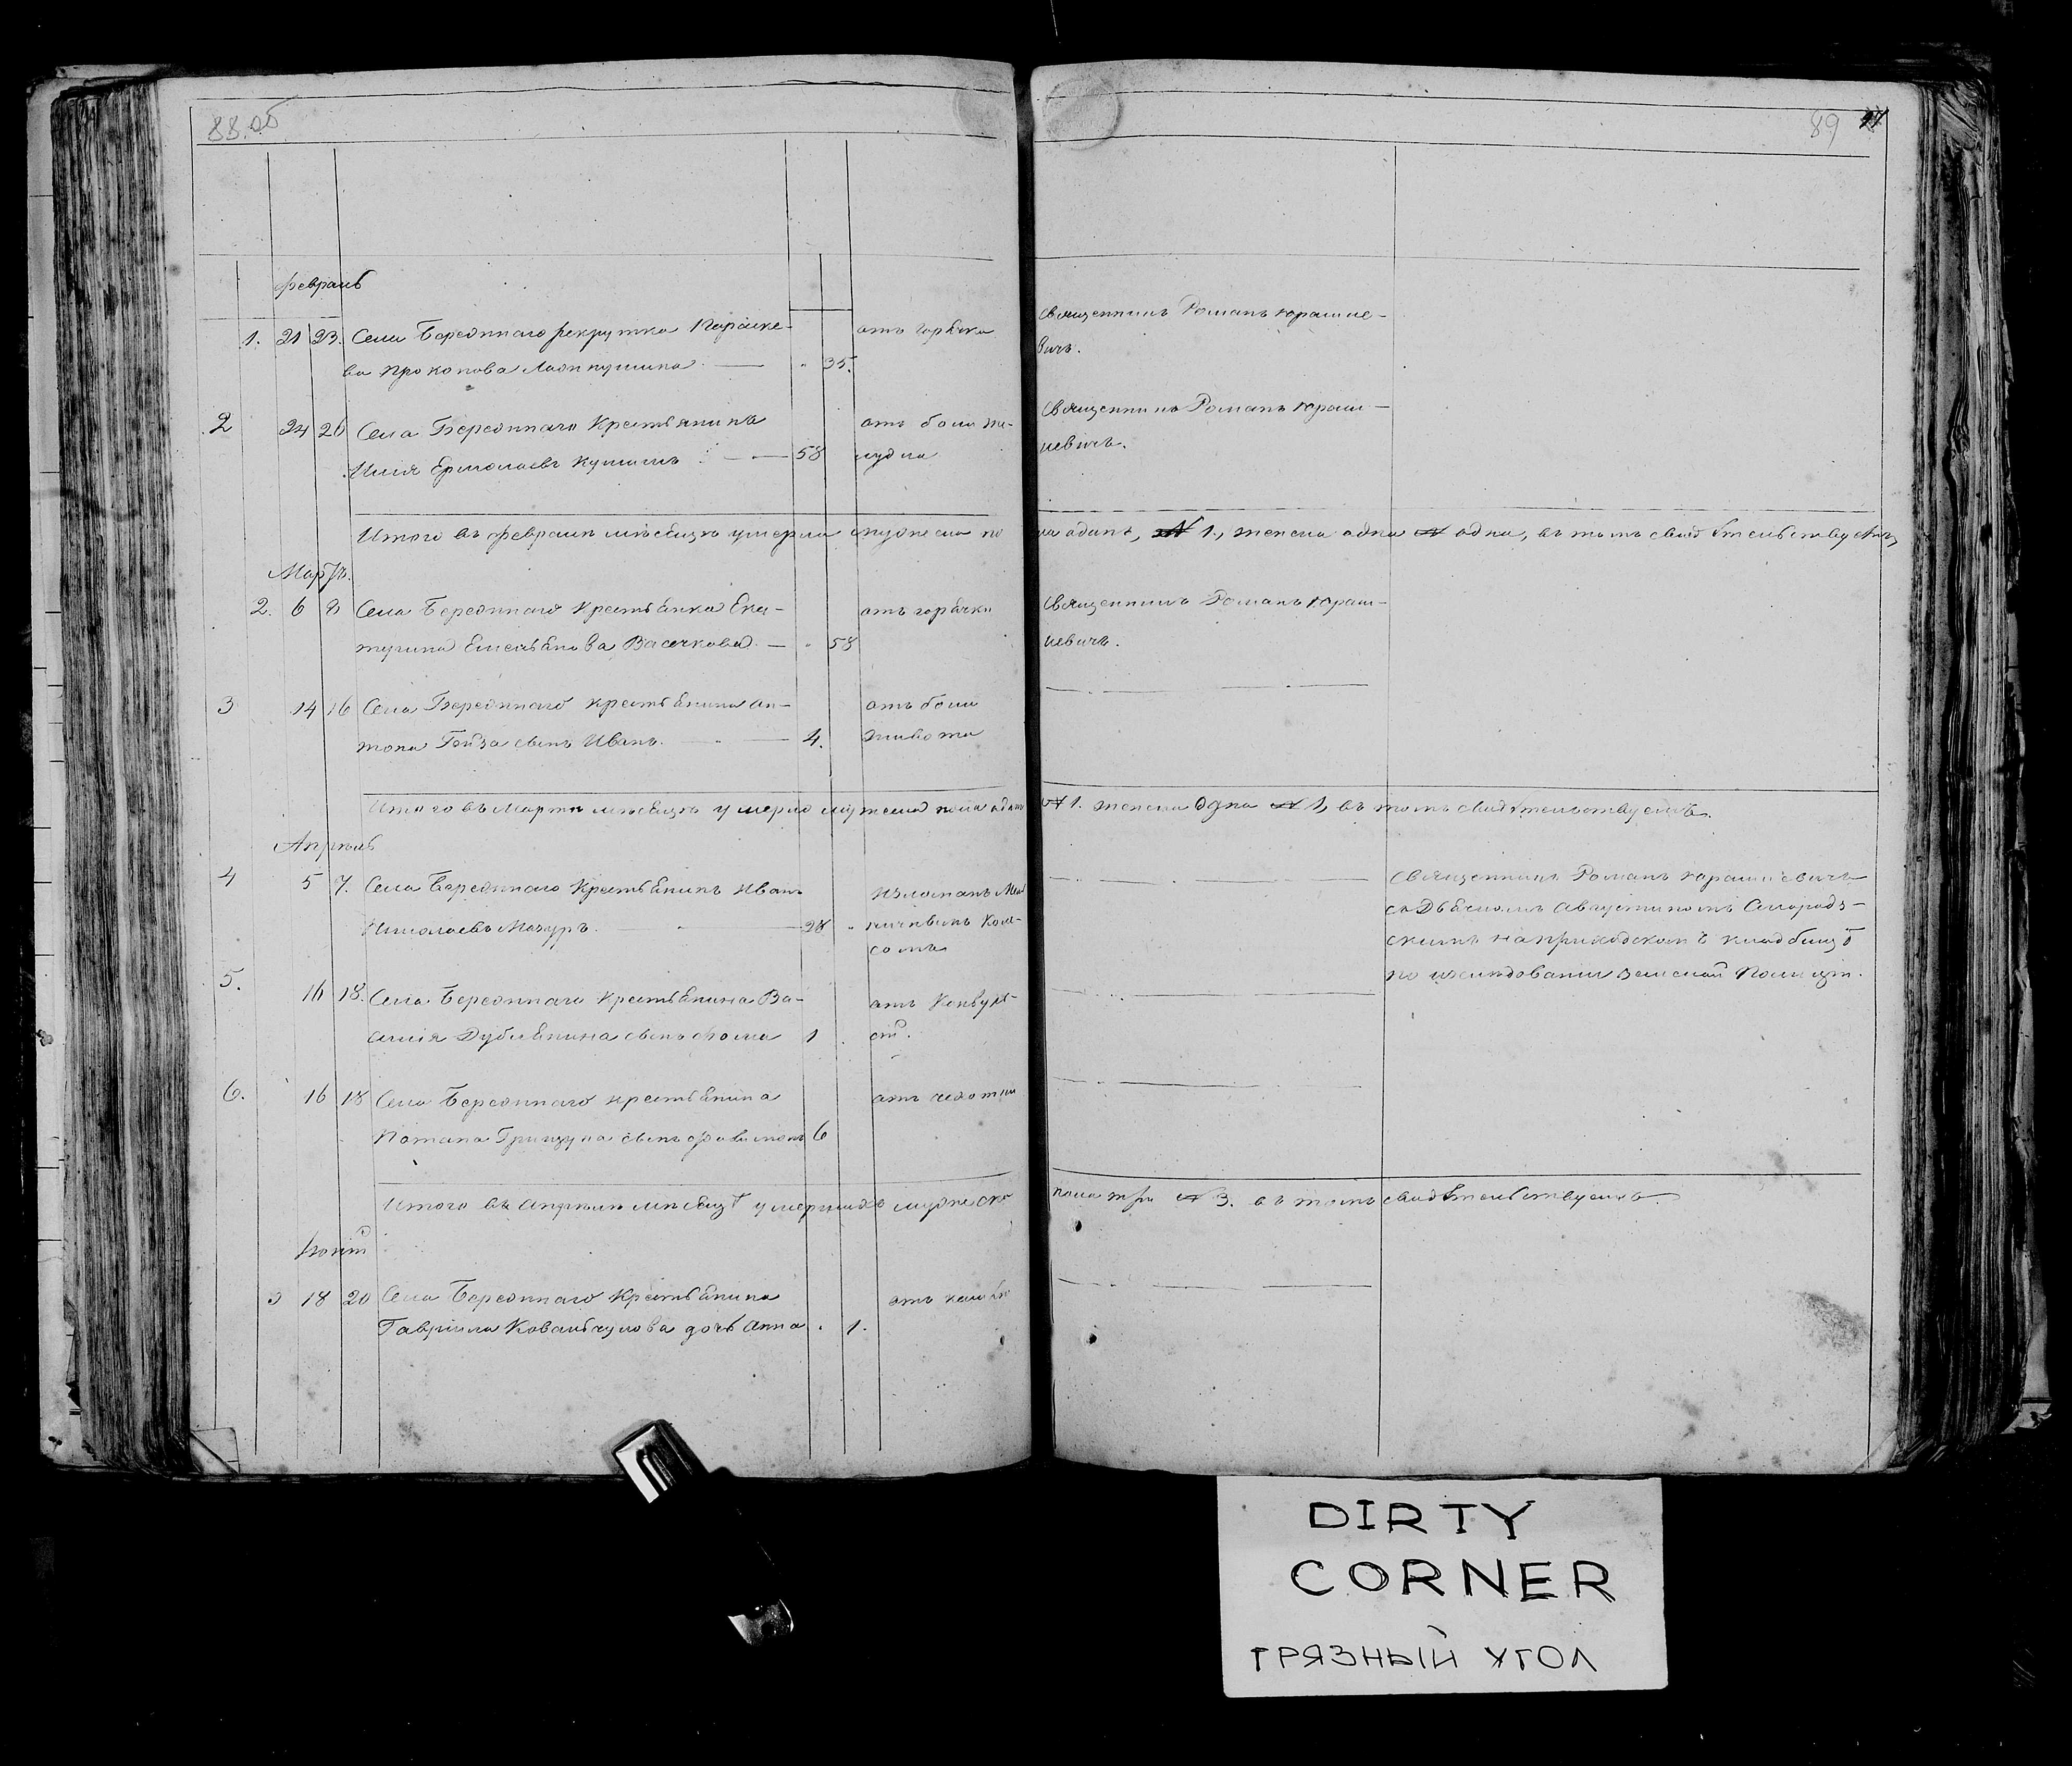 88.об
89
февраль
1. 21 23. Села Бередннаго рекрутка Параске-
ва Прокопова 35.
отъ горячки
Священникъ Романъ Юрашке-
вичъ.
2 24 26 Села Бередннаго Крестьянинъ
Илія Ермолаевъ 58
отъ боли же-
лудка
Священникъ Романъ Юраш-
кевичъ.
Итого въ февралѣ мѣсяцѣ умерло мужеска по
ла одинъ, № 1., женска одна № одна, въ томъ свидѣтельствуемъ,
Мартъ.
2. 6 8 Села Бередннаго крестьянка Ека-
терина Емельянова Васечкова 58
отъ горячки
Священникъ Романъ Юраш-
кевичъ.
3 14 16 Села Бередннаго крестьянина Ан-
тона сынъ Иванъ. 4.
отъ боли
живота
Итого въ Мартѣ мѣсяцѣ умерло мужеска пола одинъ
№ 1. женска одна № 1, въ томъ свидѣтельствуемъ.
Апрѣль
4 5 7. Села Бередннаго Крестьянинъ Иванъ
Николаевъ Мазуръ. 28
Священникъ Романъ Юрашкевичъ
съ Дьячкомъ Августиномъ
на приходскомъ кладбищѣ
по изслѣдованіи Земской Полиціи.
5. 16 18. Села Бередннаго крестьянина Ва-
силія сынъ Фома 1
отъ Конвуль-
сій.
6. 16 18 Села Бередннаго крестьянина
Потапа Грицуна сынъ 6
отъ чехотки
Итого въ Апрѣлѣ мѣсяцѣ умершихъ мужеска
пола три № 3. въ томъ свидѣтельствуемъ.
Іюній
3 18 20 Села Бередннаго Крестьянина
Гавріила Ковальчукова дочь Анна 1.
отъ кашля
DIRTY
CORNER
ГРЯЗНЫЙ УГОЛ